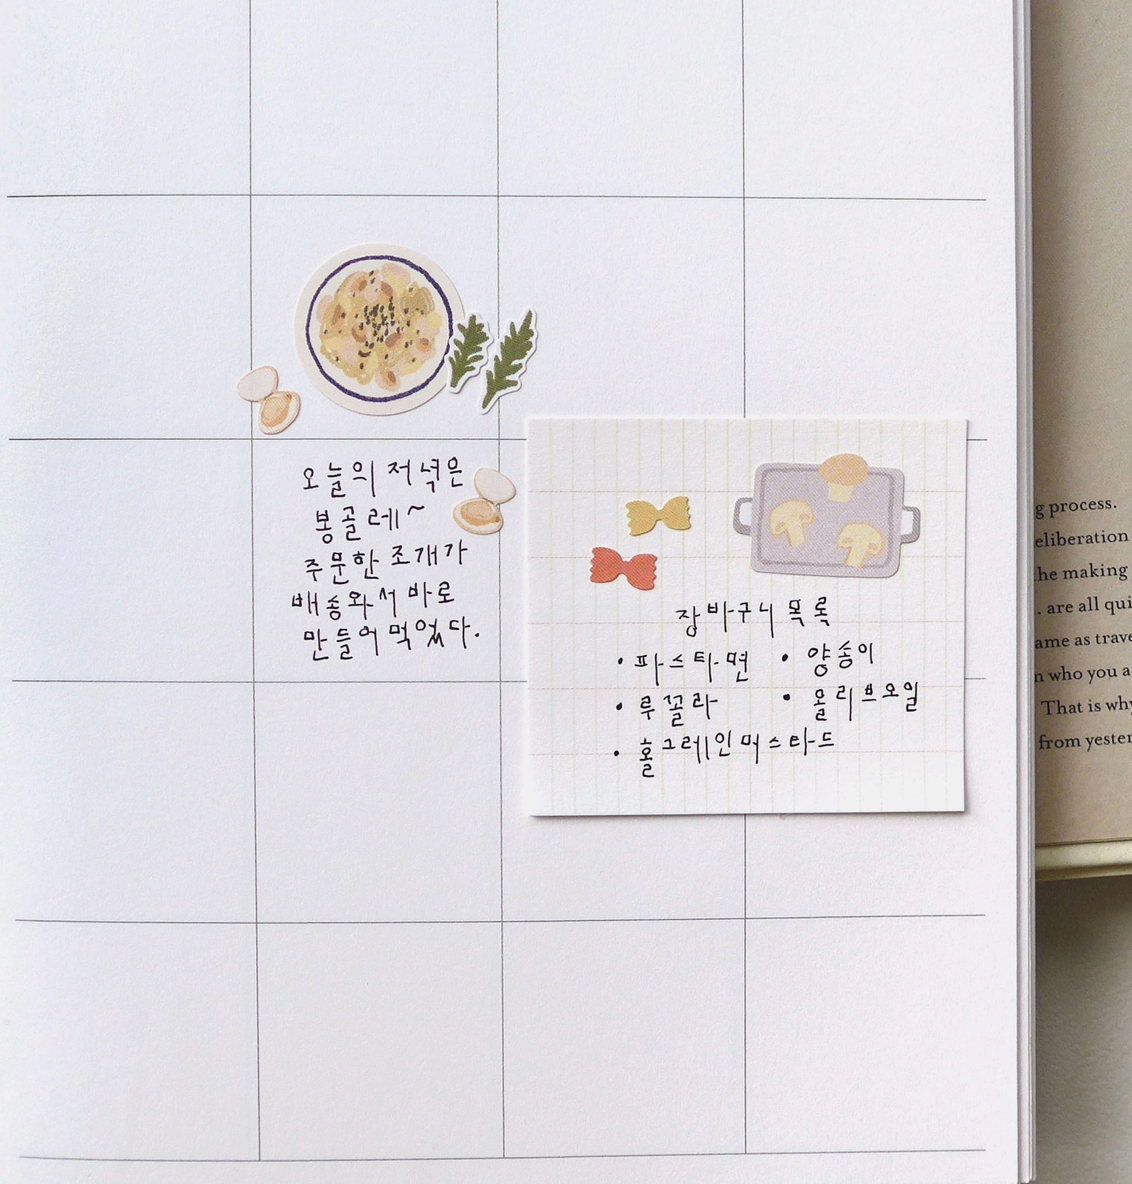 오늘의 저녁은
봉골레~
주문한 조개가
배송와서 바로
만들어 먹었다.
장바구니 목록
• 파스타면 • 양송이
• 루꼴라 • 올리브오일
• 홀그레인머스타드
g process.
eliberation
he making
. are all qui
ame as trave
n who you a
That is why
from yester